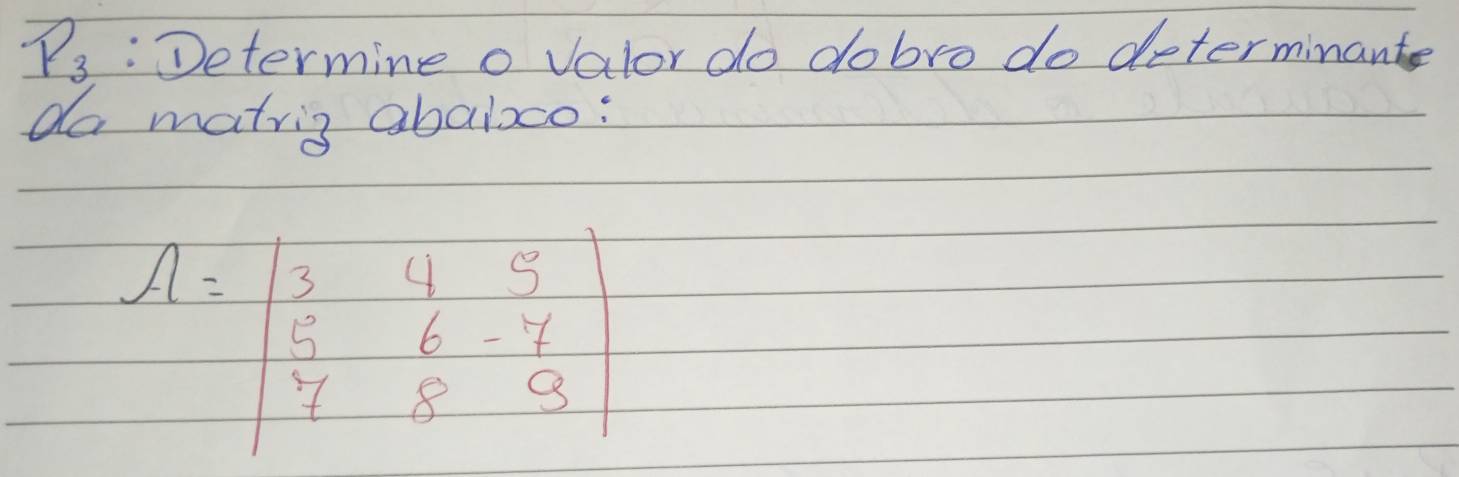 P3: Determine o valor do dobro do determinante
da matriz abaixo:
A = | 3 4 5 |
| 5 6 -7 |
| 7 8 9 |